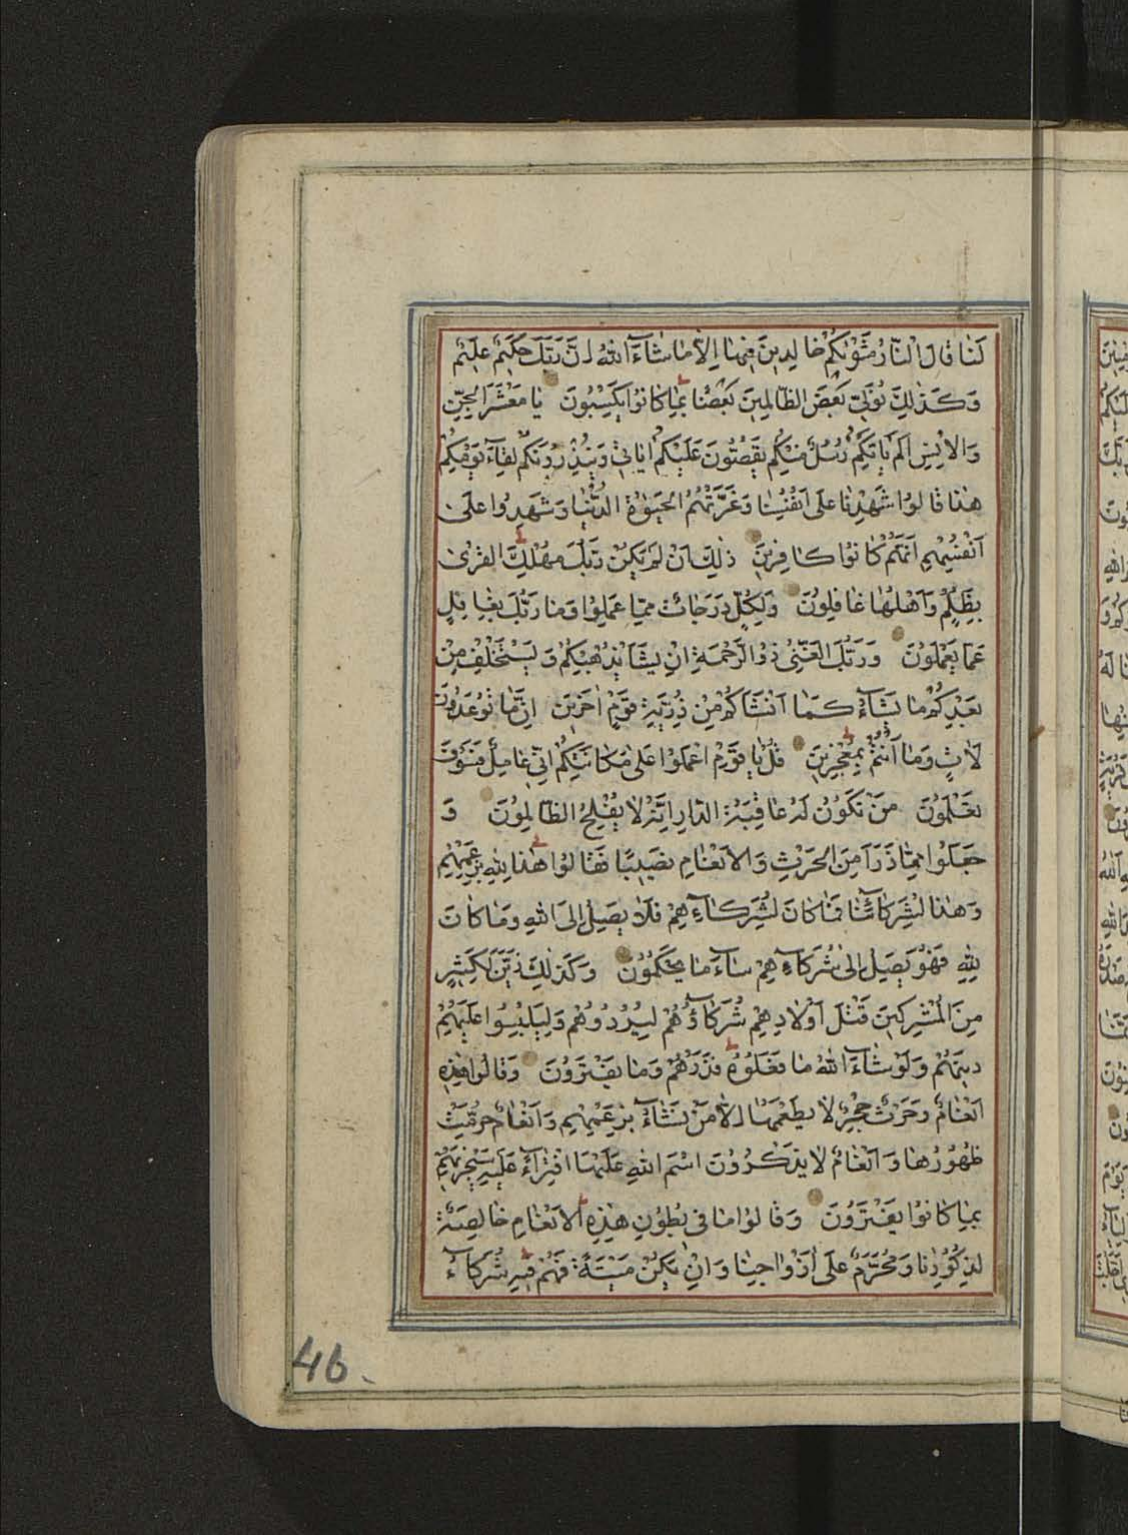 لَنٰا قٰالَ النّٰارُ مَثْوٰيكُمْ خٰالِدِينَ فِيهٰا اِلّٰا مٰا شٰآءَ اللهُ اِنَّ رَبَّكَ حَكِيمٌ عَلِيمٌ
وَكَذٰلِكَ نُوَلِّي بَعْضَ الظّٰالِمِينَ بَعْضًا بِمٰا كٰانُوا يَكْسِبُونَ يٰا مَعْشَرَ الْجِنِّ
وَالْاِنْسِ اَلَمْ يَاْتِكُمْ رُسُلٌ مِنْكُمْ يَقُصُّونَ عَلَيْكُمْ اٰيٰاتِي وَيُنْذِرُونَكُمْ لِقٰآءَ يَوْمِكُمْ
هٰذٰا قٰالُوا شَهِدْنٰا عَلٰى اَنْفُسِنٰا وَغَرَّتْهُمُ الْحَيٰوةُ الدُّنْيٰا وَشَهِدُوا عَلٰى
اَنْفُسِهِمْ اَنَّهُمْ كٰانُوا كٰافِرِينَ ذٰلِكَ اَنْ لَمْ يَكُنْ رَبُّكَ مُهْلِكَ الْقُرٰى
بِظُلْمٍ وَاَهْلُهٰا غٰافِلُونَ وَلِكُلٍّ دَرَجٰاتٌ مِمّٰا عَمِلُوا وَمٰا رَبُّكَ بِغٰافِلٍ
عَمّٰا يَعْمَلُونَ وَرَبُّكَ الْغَنِيُّ ذُو الرَّحْمَةِ اِنْ يَشَاْ يُذْهِبْكُمْ وَيَسْتَخْلِفْ مِنْ
بَعْدِكُمْ مٰا يَشٰآءُ كَمٰا اَنْشَاَكُمْ مِنْ ذُرِّيَّةِ قَوْمٍ اٰخَرِينَ اِنَّ مٰا تُوعَدُونَ
لَاٰتٍ وَمٰا اَنْتُمْ بِمُعْجِزِينَ قُلْ يٰا قَوْمِ اعْمَلُوا عَلٰى مَكٰانَتِكُمْ اِنِّي عٰامِلٌ فَسَوْفَ
تَعْلَمُونَ مَنْ تَكُونُ لَهُ عٰاقِبَةُ الدّٰارِ اِنَّهُ لٰا يُفْلِحُ الظّٰالِمُونَ وَ
جَعَلُوا لِلّٰهِ مِمّٰا ذَرَاَ مِنَ الْحَرْثِ وَالْاَنْعٰامِ نَصِيبًا فَقٰالُوا هٰذٰا لِلّٰهِ بِزَعْمِهِمْ
وَهٰذٰا لِشُرَكٰآئِنٰا فَمٰا كٰانَ لِشُرَكٰآءِهِمْ فَلٰا يَصِلُ اِلَى اللهِ وَمٰا كٰانَ
لِلّٰهِ فَهُوَ يَصِلُ اِلٰى شُرَكٰآءِهِمْ سٰآءَ مٰا يَحْكُمُونَ وَكَذٰلِكَ زَيَّنَ لِكَثِيرٍ
مِنَ الْمُشْرِكِينَ قَتْلَ اَوْلٰادِهِمْ شُرَكٰآؤُهُمْ لِيُرْدُوهُمْ وَلِيَلْبِسُوا عَلَيْهِمْ
دِينَهُمْ وَلَوْ شٰآءَ اللهُ مٰا فَعَلُوهُ فَذَرْهُمْ وَمٰا يَفْتَرُونَ وَقٰالُوا هٰذِهِ
اَنْعٰامٌ وَحَرْثٌ حِجْرٌ لٰا يَطْعَمُهٰا اِلّٰا مَنْ نَشٰآءُ بِزَعْمِهِمْ وَاَنْعٰامٌ حُرِّمَتْ
ظُهُورُهٰا وَاَنْعٰامٌ لٰا يَذْكُرُونَ اسْمَ اللهِ عَلَيْهَا افْتِرٰآءً عَلَيْهِ سَيَجْزِيهِمْ
بِمٰا كٰانُوا يَفْتَرُونَ وَقٰالُوا مٰا فِي بُطُونِ هٰذِهِ الْاَنْعٰامِ خٰالِصَةٌ
لِذُكُورِنٰا وَمُحَرَّمٌ عَلٰى اَزْوٰاجِنٰا وَاِنْ يَكُنْ مَيْتَةً فَهُمْ فِيهِ شُرَكٰآءُ
46